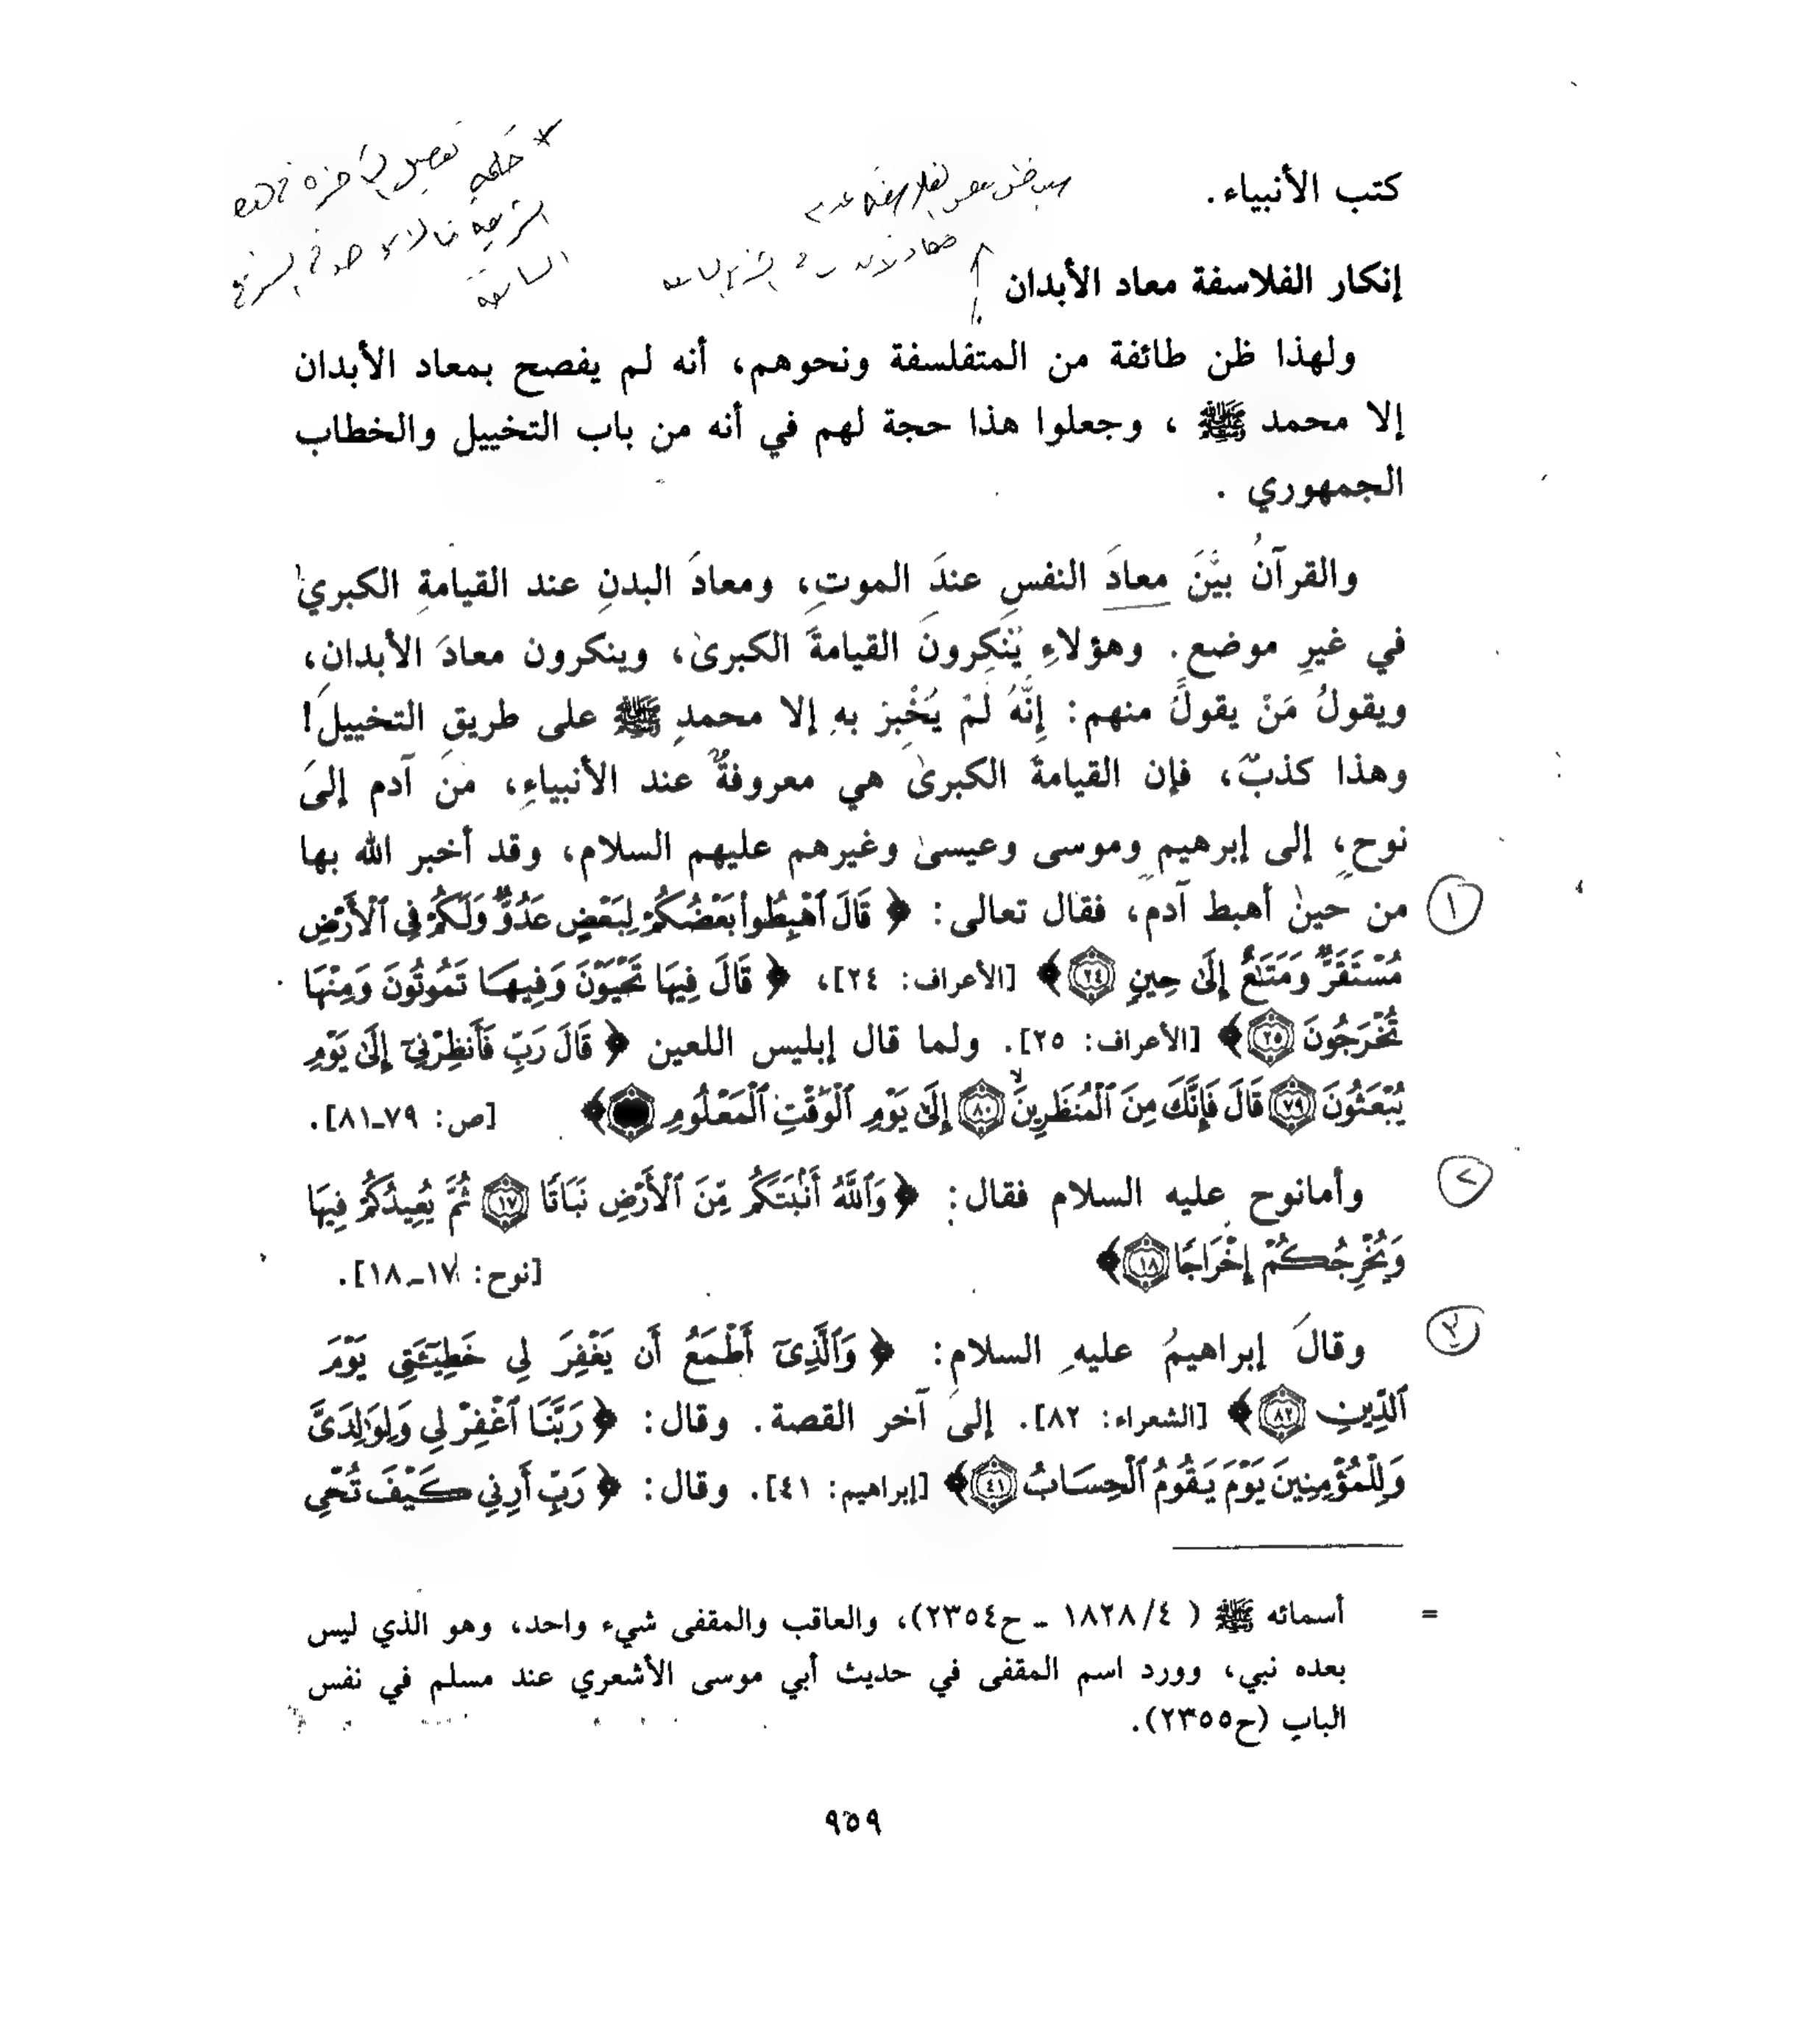 كتب الأنبياء.
إنكار الفلاسفة معاد الأبدان
ولهذا ظن طائفة من المتفلسفة ونحوهم، أنه لم يفصح بمعاد الأبدان
إلا محمد ﷺ ، وجعلوا هذا حجة لهم في أنه من باب التخييل والخطاب
الجمهوري .
والقرآنُ بيَّنَ معادَ النفسِ عندَ الموتِ، ومعادَ البدنِ عند القيامةِ الكبرىٰ
في غيرِ موضع. وهؤلاءِ يُنْكِرونَ القيامةَ الكبرىٰ، وينكرون معادَ الأبدانِ،
ويقولُ مَنْ يقولُ منهم: إِنَّهُ لَمْ يُخْبِرْ بهِ إلا محمدٍ ﷺ على طريقِ التخييلَ!
وهذا كذبٌ، فإن القيامةَ الكبرىٰ هي معروفةٌ عند الأنبياءِ، منَ آدم إلىَ
نوحٍ، إلى إبرهيم وموسى وعيسىٰ وغيرهم عليهم السلام، وقد أخبر الله بها
من حين أهبط آدم، فقال تعالى: ﴿ قَالَ ٱهْبِطُوا۟ بَعْضُكُمْ لِبَعْضٍ عَدُوٌّ وَلَكُمْ فِى ٱلْأَرْضِ
مُسْتَقَرٌّ وَمَتَٰعٌ إِلَىٰ حِينٍ ٢٤ ﴾ [الأعراف: ٢٤]، ﴿ قَالَ فِيهَا تَحْيَوْنَ وَفِيهَا تَمُوتُونَ وَمِنْهَا
تُخْرَجُونَ ٢٥ ﴾ [الأعراف: ٢٥]. ولما قال إبليس اللعين ﴿ قَالَ رَبِّ فَأَنظِرْنِىٓ إِلَىٰ يَوْمِ
يُبْعَثُونَ ٧٩ قَالَ فَإِنَّكَ مِنَ ٱلْمُنظَرِينَ ٨٠ إِلَىٰ يَوْمِ ٱلْوَقْتِ ٱلْمَعْلُومِ ﴾ [ص: ٧٩ـ٨١].
١
وأمانوح عليه السلام فقال: ﴿ وَٱللَّهُ أَنۢبَتَكُم مِّنَ ٱلْأَرْضِ نَبَاتًا ١٧ ثُمَّ يُعِيدُكُمْ فِيهَا
وَيُخْرِجُكُمْ إِخْرَاجًا ١٨ ﴾ [نوح: ١٧ـ١٨].
٢
وقالَ إبراهيمُ عليهِ السلامِ: ﴿ وَٱلَّذِىٓ أَطْمَعُ أَن يَغْفِرَ لِى خَطِيٓـَٔتِى يَوْمَ
ٱلدِّينِ ٨٢ ﴾ [الشعراء: ٨٢]. إلى آخر القصة. وقال: ﴿ رَبَّنَا ٱغْفِرْ لِى وَلِوَٰلِدَىَّ
وَلِلْمُؤْمِنِينَ يَوْمَ يَقُومُ ٱلْحِسَابُ ٤١ ﴾ [إبراهيم: ٤١]. وقال: ﴿ رَبِّ أَرِنِى كَيْفَ تُحْىِ
٣
= أسمائه ﷺ ( ١٨٢٨/٤ ـ ح٢٣٥٤)، والعاقب والمقفى شيء واحد، وهو الذي ليس
بعده نبي، وورد اسم المقفى في حديث أبي موسى الأشعري عند مسلم في نفس
الباب (ح٢٣٥٥).
٩٥٩